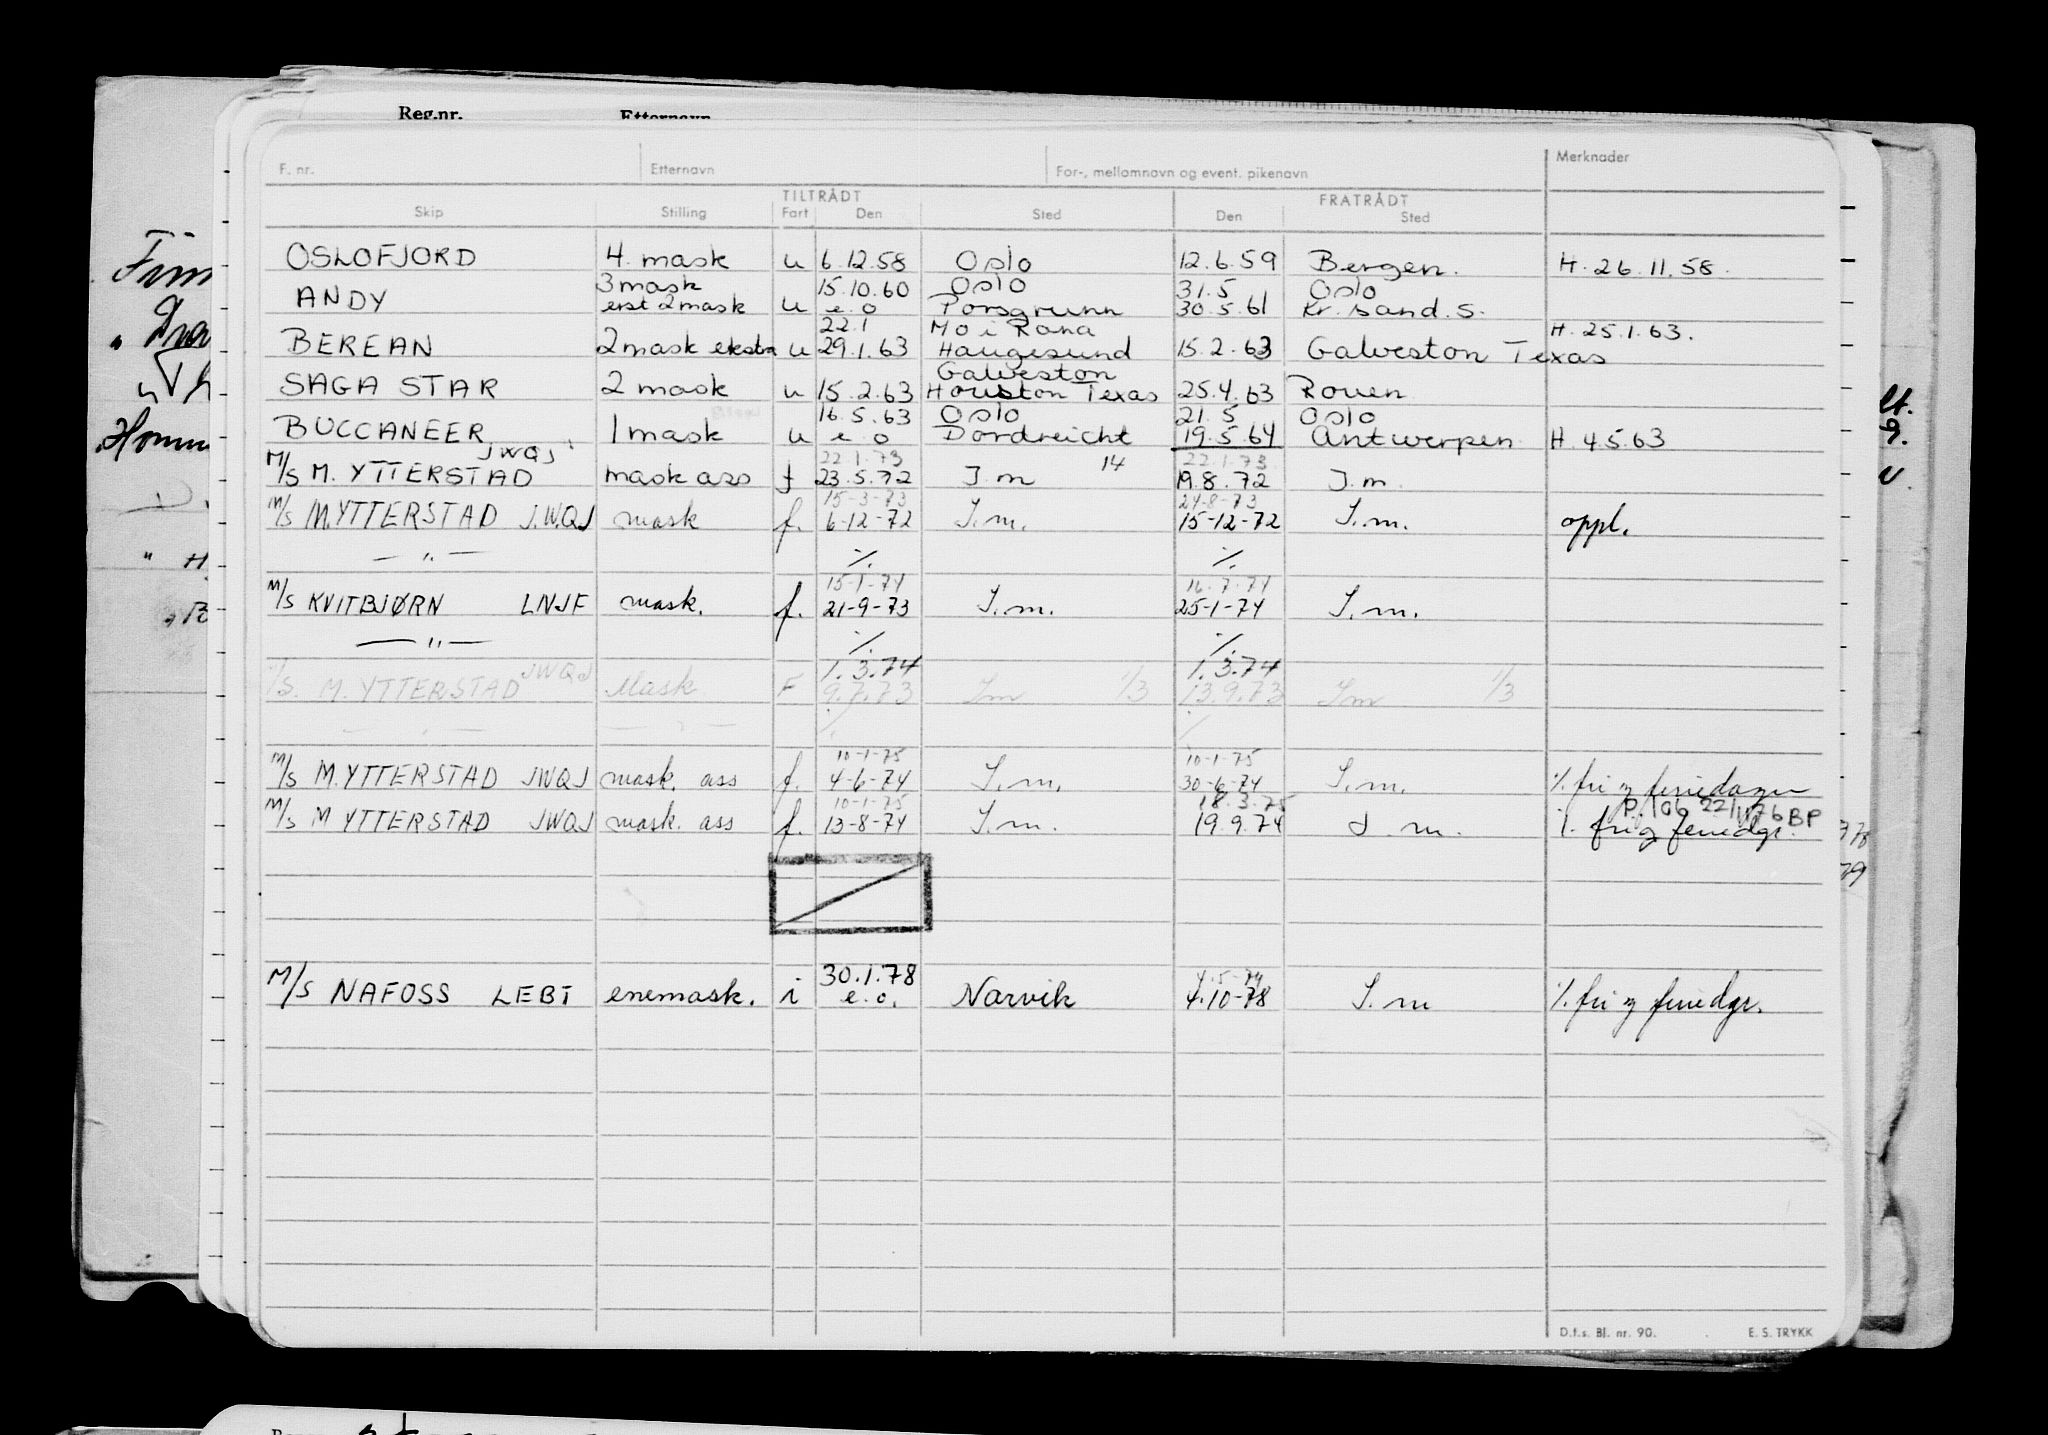 Reg.nr. Etternavn
F. nr. Etternavn For-, mellomnavn og event. pikenavn Merknader
TILTRÅDT FRATRÅDT
Skip Stilling Fart Den Sted Den Sted
OSLOFJORD 4. mask u 6.12.58 Oslo 12.6.59 Bergen. H. 26.11.58.
3 mask 15.10.60 Oslo 31.5 Oslo
ANDY erst 2 mask u e.o Porsgrunn 30.5.61 Kr.sand.S.
22.1 Mo i Rana H. 25.1.63.
BEREAN 2 mask ekstra u 29.1.63 Haugesund 15.2.63 Galveston Texas
Galveston
SAGA STAR 2 mask u 15.2.63 Houston Texas 25.4.63 Rouen
16.5.63 Oslo 21.5 Oslo
BUCCANEER 1 mask u e.o Dordreicht 19.5.64 Antwerpen H. 4.5.63
JWQJ 22.1.73 14 22.1.73
M/S M. YTTERSTAD mask ass f 23.5.72 I.m 19.8.72 I.m.
15-3-73 24-8-73
M/S M.YTTERSTAD JWQJ mask f. 6-12-72 I.m. 15-12-72 I.m. oppl.
— " — ./. ./.
15-1-74 16.7.74
M/S KVITBJØRN LNJF mask. f. 21-9-73 I.m. 25-1-74 I.m.
— " — ./. ./.
JWQJ 1.3.74 1.3.74
/S. M. YTTERSTAD Mask F 9.7.73 Im 1/3 13.9.73 Im 1/3
— " —
10-1-75 10-1-75
M/S M.YTTERSTAD JWQJ mask. ass f. 4-6-74 I.m. 30-6-74 I.m. ./. fri og feriedager
10-1-75 18.3.75 22/1176 BP
M/S M YTTERSTAD JWQJ mask. ass f. 13-8-74 I.m. 19.9.74 I.m. ./. fri og feriedgr.
30.1.78
M/S NAFOSS LEBT enemask. i e.o. Narvik 4.10-78 I.m ./. fri og feriedgr.
D.f.s. Bl. nr. 90. E. S. TRYKK